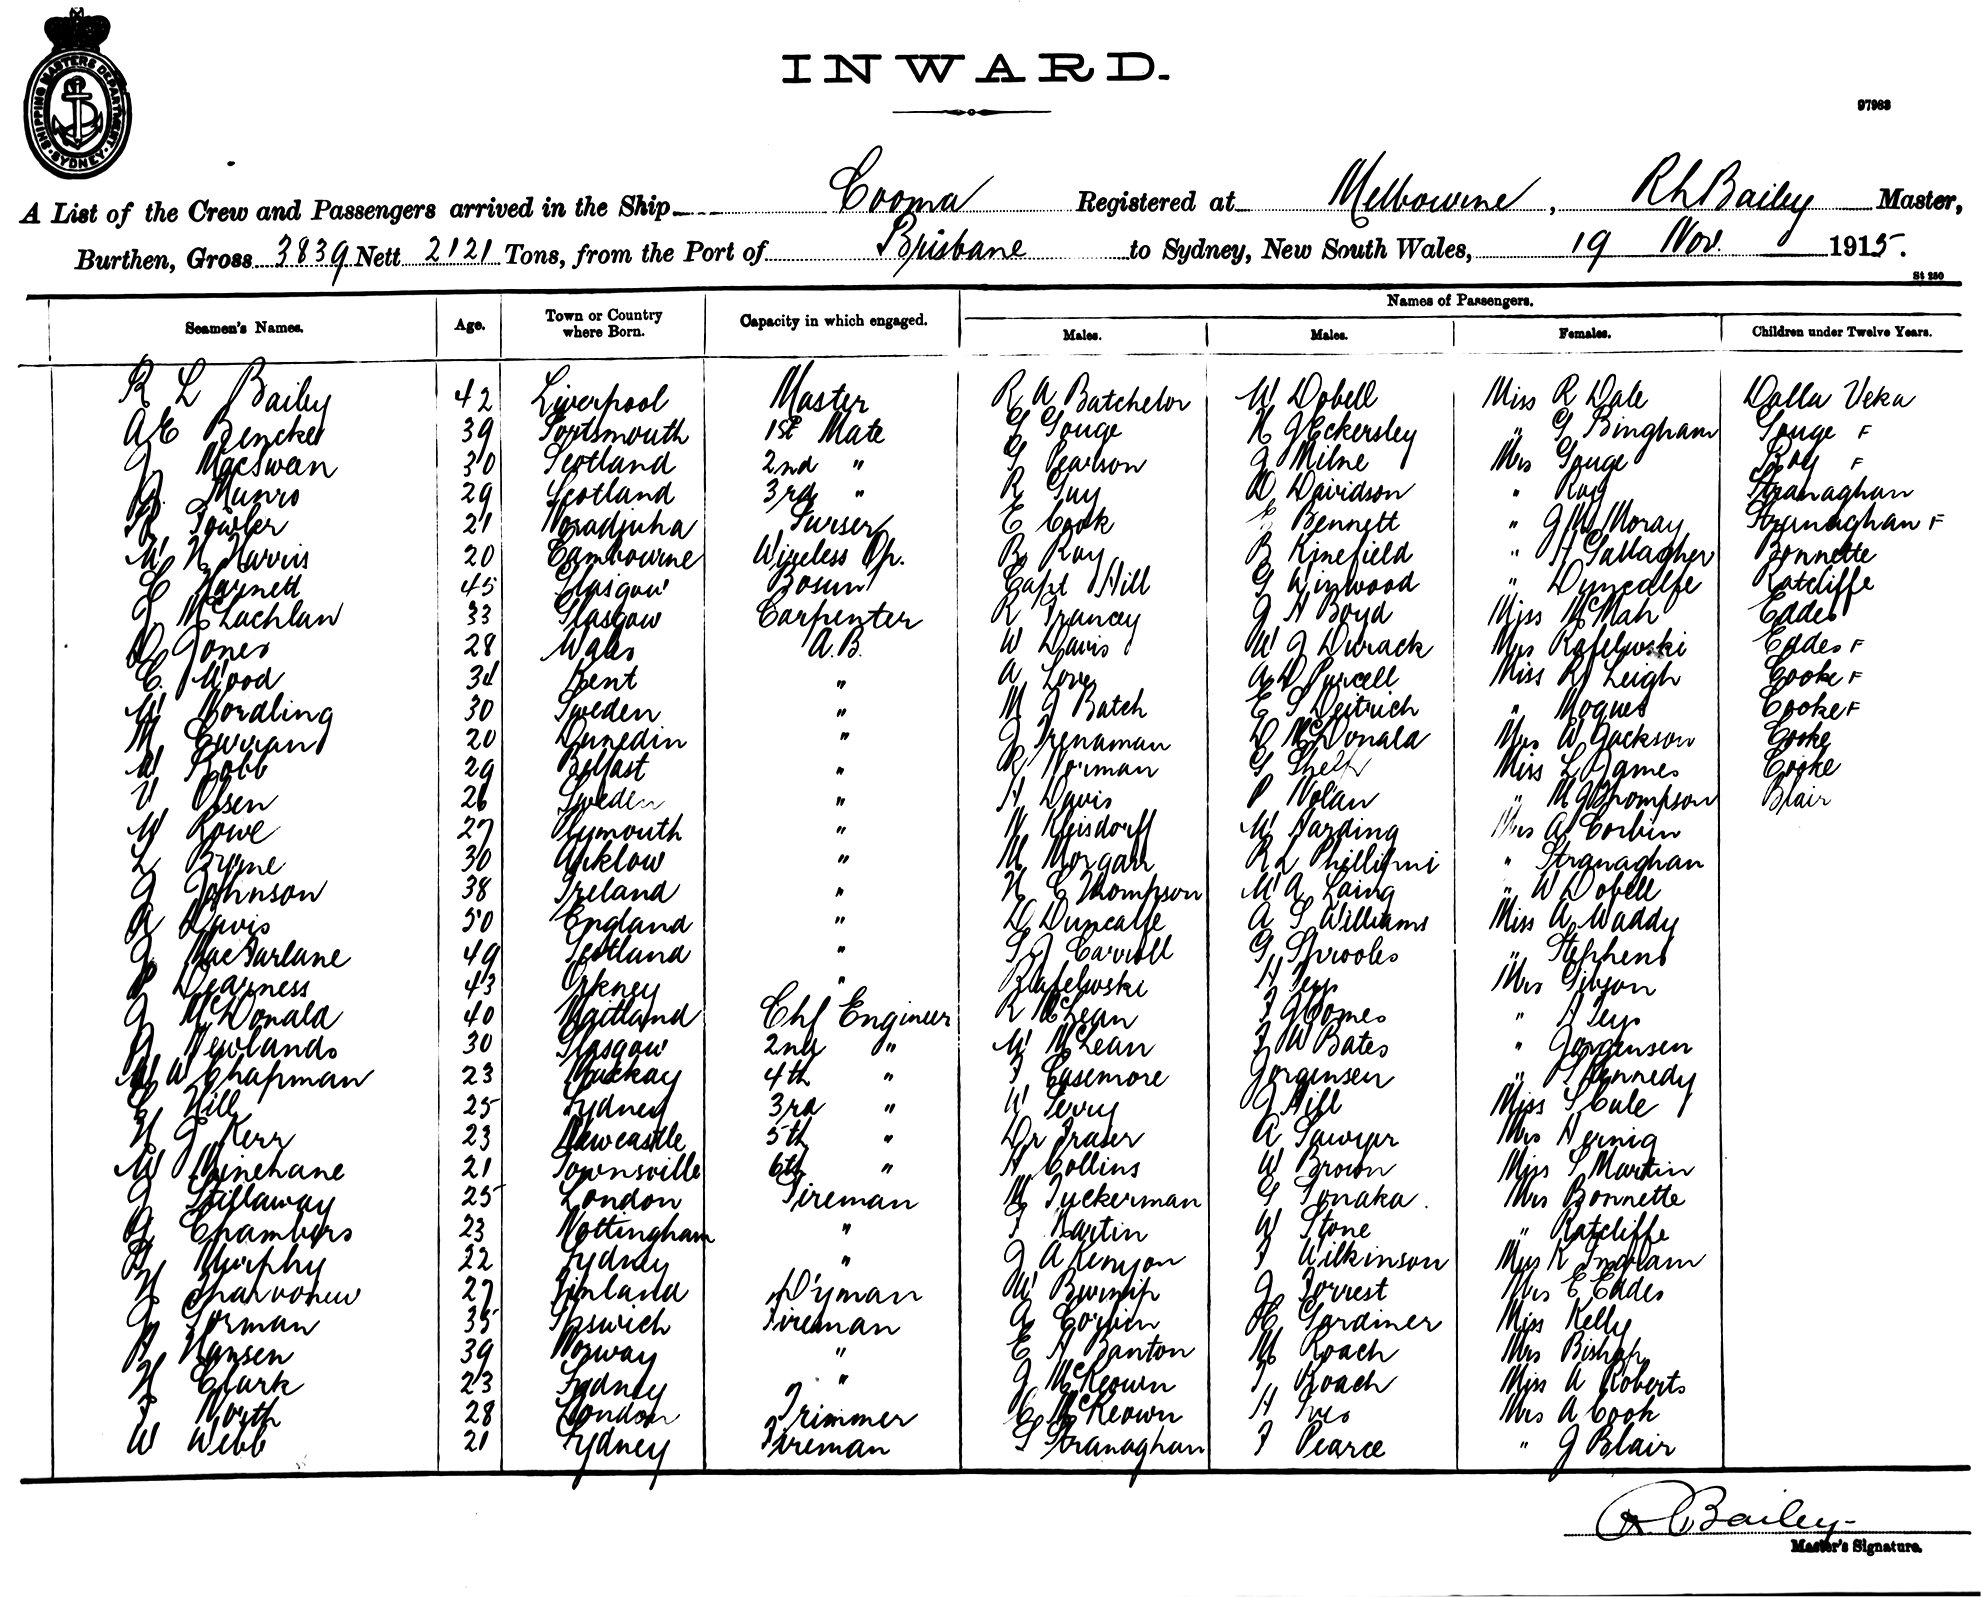 SHIPPING MASTERS DEPARTMENT. SYDNEY.
INWARD.
97963
A List of the Crew and Passengers arrived in the Ship Cooma Registered at Melbourne, Master,
Burthen, Gross 3839 Nett 2121 Tons, from the Port of Brisbane to Sydney, New South Wales, 19 Nov. 1915.
St 250
Names of Passengers.
Seamen's Names. Age. Town or Country where Born. Capacity in which engaged. Males. Males. Females. Children under Twelve Years.
R L Bailey 42 Liverpool Master R A Batchelor W Dobell Miss R Dale Dalla Veka
A E Bencke 39 Portsmouth 1st Mate G Gouge H J Eckersley " G Bingham Gouge F
J MacSwan 30 Scotland 2nd " G Pearson J Milne Mrs Gouge Roy F
Munro 29 Scotland 3rd " R Guy D Davidson " Roy Stranaghan
Fowler 21 Purser E Cook E Bennett " Moray Stranaghan F
W H Harris 20 Cambourne Wireless Op. B Roy B Kinefield " Gallagher Bonnette
C Harnett 45 Glasgow Bosun Capt Hill G Winwood " Duncalfe Ratcliffe
J McLachlan 33 Glasgow Carpenter R Francey J H Boyd Miss McMah Eddes
D Jones 28 Wales A.B. W Davis W J Durack Mrs Rafelwski Eddes F
C Wood 34 Kent " A Love A D Purcell Miss R Leigh Cooke F
W Nordling 30 Sweden " M J Batch E S Deitrich " Cooke F
M Curran 20 Dunedin " J Trenaman D McDonald Mrs A Jackson Cooke
W Robb 29 Belfast " R Norman G Miss L James Cooke
V Olsen 26 Sweden " H Davis P Nolan " M J Thompson Blair
W Rowe 27 Plymouth " W Harding Mrs A Corbin
L Byrne 30 Arklow " M Morgan R L " Stranaghan
J Johnson 38 Ireland " H C Thompson W A Laing " W Dobell
A Davis 50 England " D Duncalfe A S Williams Miss A Waddy
J MacFarlane 49 Scotland " S J Carroll G Sprooles " Stephens
P Dearness 43 Orkney " Rafelwski H Teys Mrs Gibson
J McDonald 40 Maitland Chf Engineer R McLean " H Teys
J Newlands 30 Glasgow 2nd " W McLean F W Bates " Jorgensen
W W Chapman 23 Mackay 4th " F Casemore Jorgensen " Kennedy
Hill 25 Sydney 3rd " W Perry J Hill Miss S Cule
H J Kerr 23 Newcastle 5th " Dr Fraser A Sawyer Mrs Hernig
W Minehane 21 Townsville 6th " H Collins W Brown Miss S Martin
J Stillaway 25 London Fireman M Tuckerman G Tonaka. Mrs Bonnette
G Chambers 23 Nottingham " F Martin W Stone " Ratcliffe
Murphy 22 Sydney " J A Kenyon F Wilkinson Miss K Ingram
H 27 Finland D'yman W Burnip J Forrest Mrs E Eddes
J Gorman 35 Ipswich Fireman A Corbin H Gardiner Miss Kelly
H Hansen 39 Norway " E A Banton M Roach Mrs Bishop
H Clark 23 Sydney " J McKeown T Roach Miss A Roberts
F North 28 London Trimmer C McKeown H Ives Mrs A Cook
W Webb 21 Sydney Fireman S Stranaghan F Pearce " J Blair
R Bailey
Master's Signature.